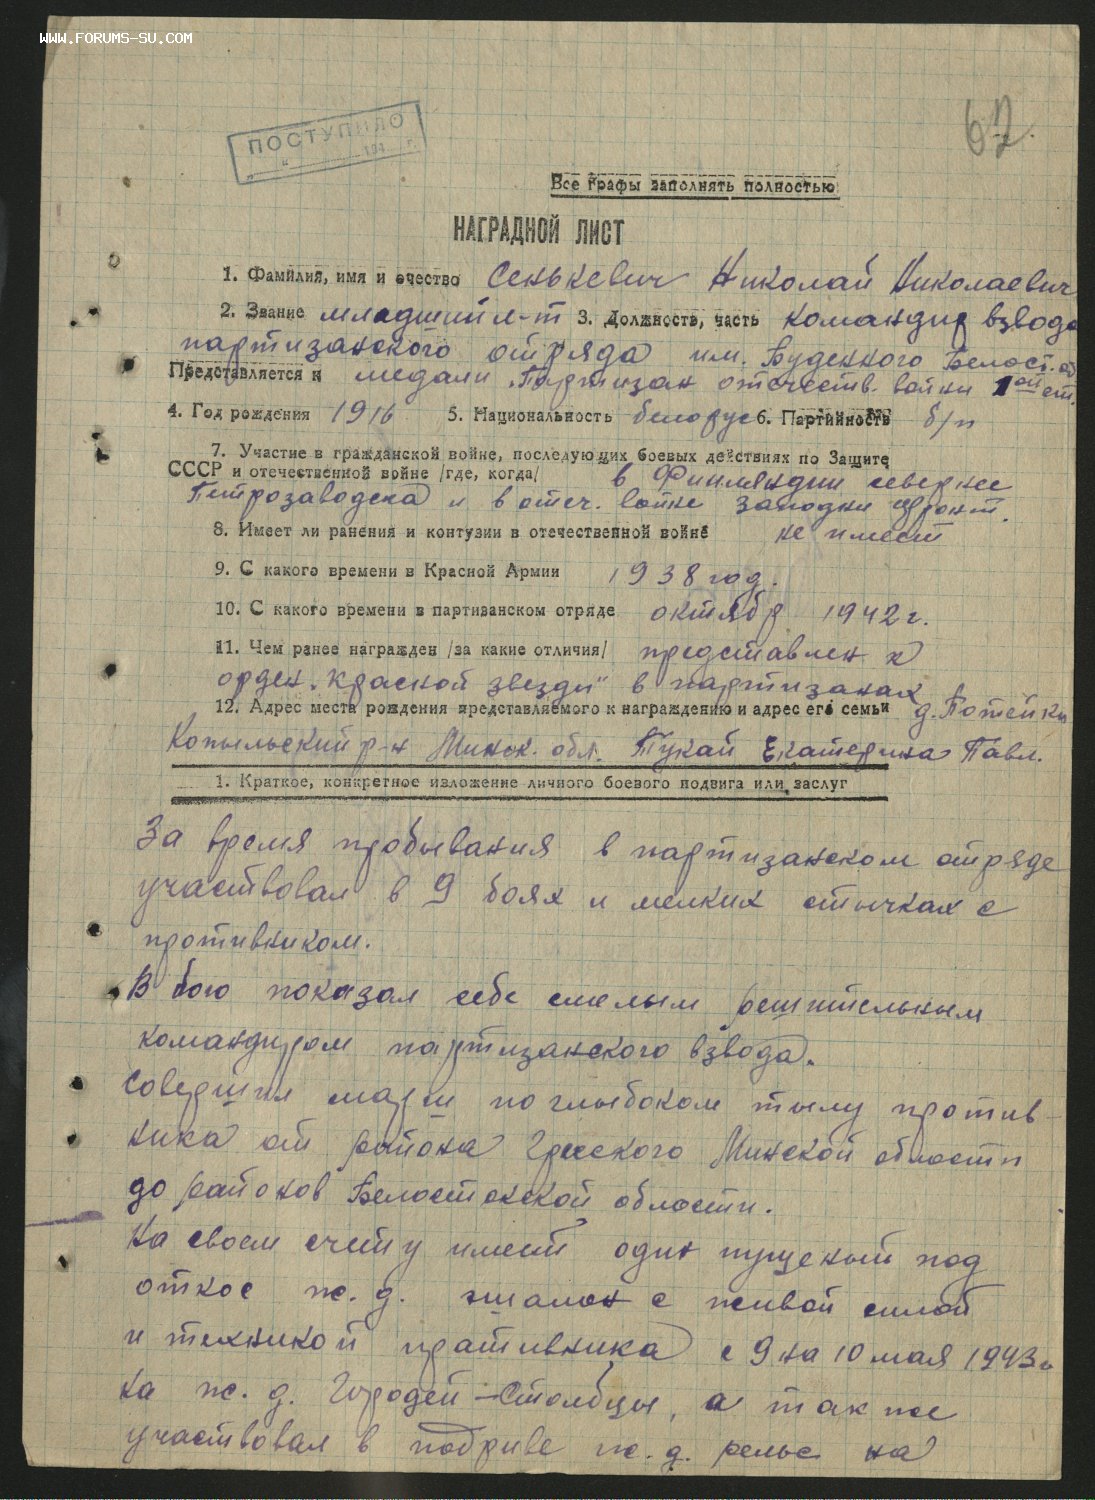 WWW.FORUMS-SU.COM
62.
ПОСТУПИЛО
" " 194 г.
Все графы заполнять полностью
НАГРАДНОЙ ЛИСТ
1. Фамилия, имя и очество Сенькевич Николай Николаевич
2. Звание младший л-т 3. Должность, часть командир взвода
партизанского отряда им. Буденного Белост. об
Представляется к медали "Партизан отечеств. войны 1ой ст.
4. Год рождения 1916 5. Национальность белорус 6. Партийность б/п
7. Участие в гражданской войне, последующих боевых действиях по Защите
СССР и отечественной войне /где, когда/ в Финляндии севернее
Петрозаводска и в отеч. войне Западн фронт.
8. Имеет ли ранения и контузии в отечественной войне не имеет
9. С какого времени в Красной Армии 1938 год.
10. С какого времени в партизанском отряде октябр 1942 г.
11. Чем ранее награжден /за какие отличия/ представлен к
орден. "Красной звезды" в партизанах
12. Адрес места рождения представляемого к награждению и адрес его семьи д. Потейки
Копыльский р-н Минск. обл. Тукай Екатерина Павл.
1. Краткое, конкретное изложение личного боевого подвига или заслуг
За время пробывания в партизанском отряде
участвовал в 9 боях и мелких стычках с
противником.
В бою показал себе смелым решительным
командиром партизанского взвода.
Совершил марш по глыбоком тылу против-
ника от района Гресского Минской области
до районов Белостокской области.
На своем счету имеет один пущеный под
откос ж. д. эшалон с живой силой
и техникой пративника с 9 на 10 мая 1943 г
на ж. д. Городей - Столбцы, а также
участвовал в подриве ж. д. рельс на